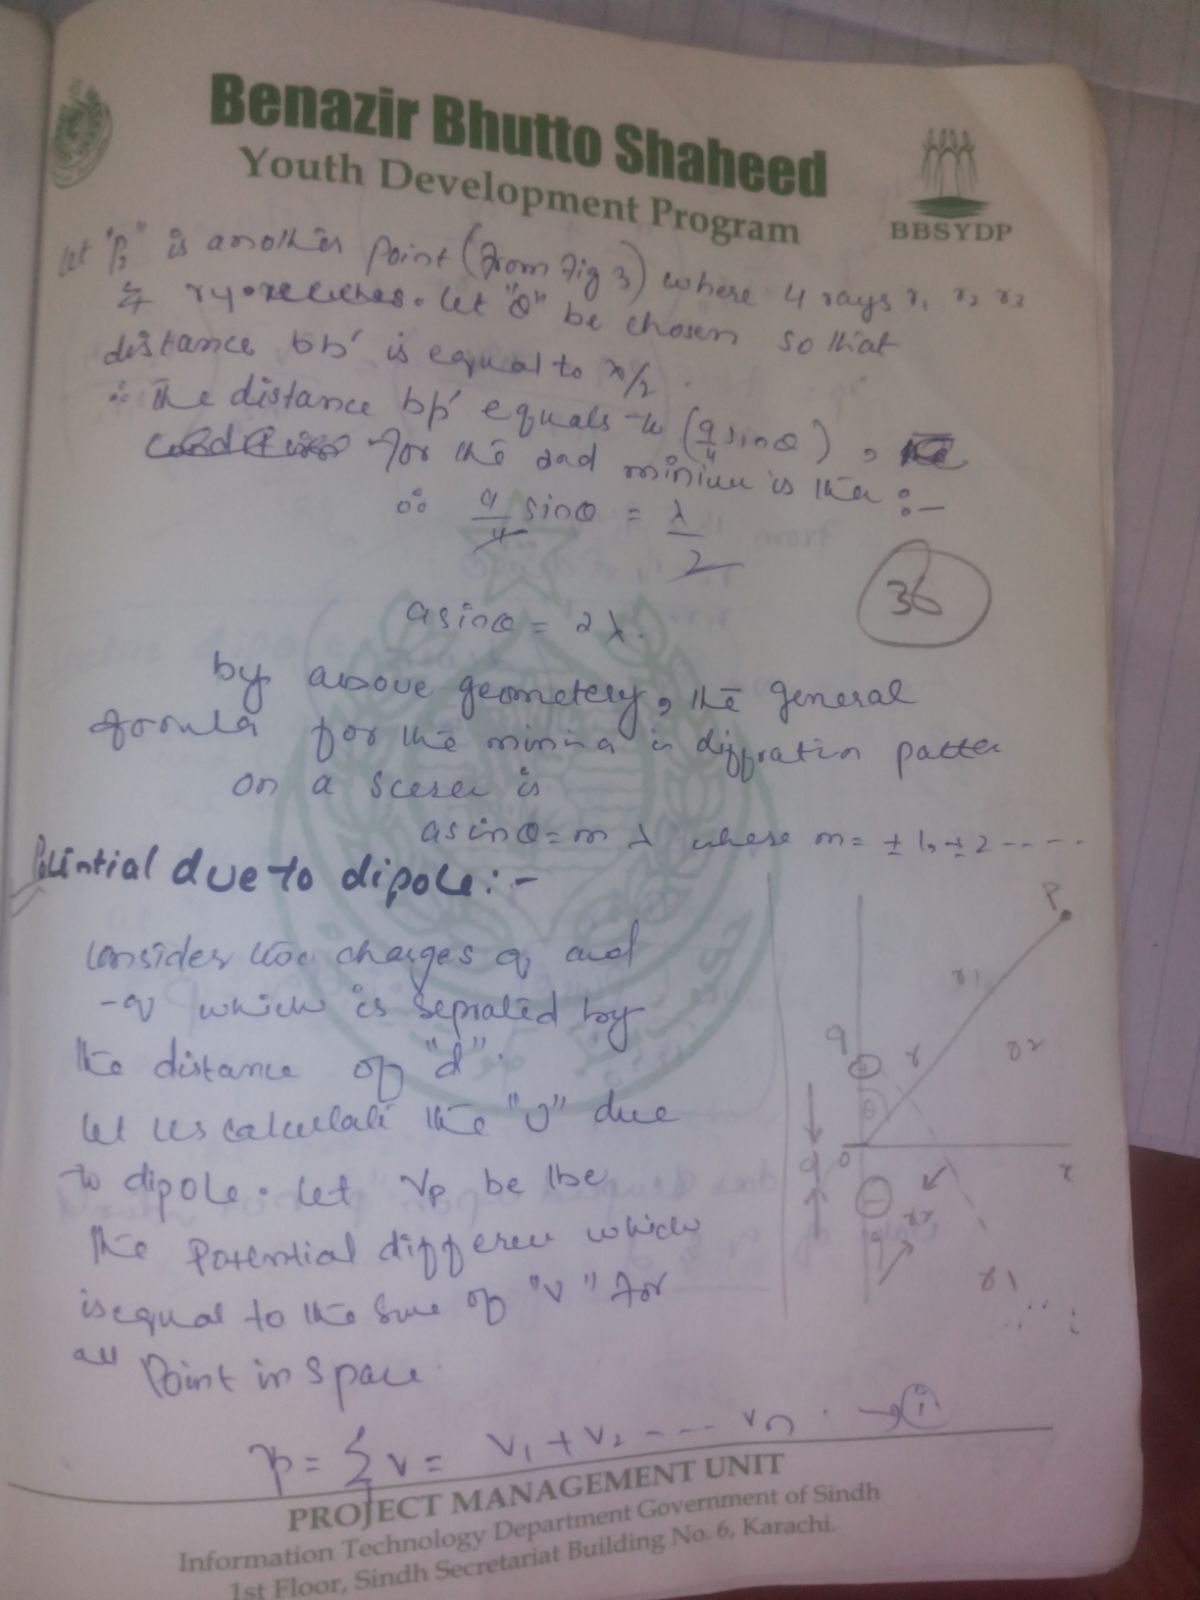 Benazir Bhutto Shaheed
Youth Development Program
BBSYDP
let "P₂" is another point (from fig 3) where 4 rays r₁ r₂ r₃
& r₄ let "θ" be chosen so that
distance bb' is equal to λ/2.
∴ the distance bb' equals to (a/4 sinθ),
for the 2nd minium is the :-
∴ a/4 sinθ = λ/2
36
asinθ = 2λ.
by above geometery, the general
formula for the minima in diffration patter
on a screen is
asinθ = m λ where m = ±1, ±2 -----
Potintial due to dipole:-
Consider two charges q and
-q which is seprated by
the distance of "d".
let us calculate the "V" due
to dipole. let Vp be the
the Potential differen which
is equal to the sum of "V" for
all Point in space
Vp = Σ V = V₁ + V₂ ---- Vn. → (i)
P
r₁
q
+
r
r₂
θ
d
o
x
-
q
r₂
r₁
PROJECT MANAGEMENT UNIT
Information Technology Department Government of Sindh
1st Floor, Sindh Secretariat Building No. 6, Karachi.